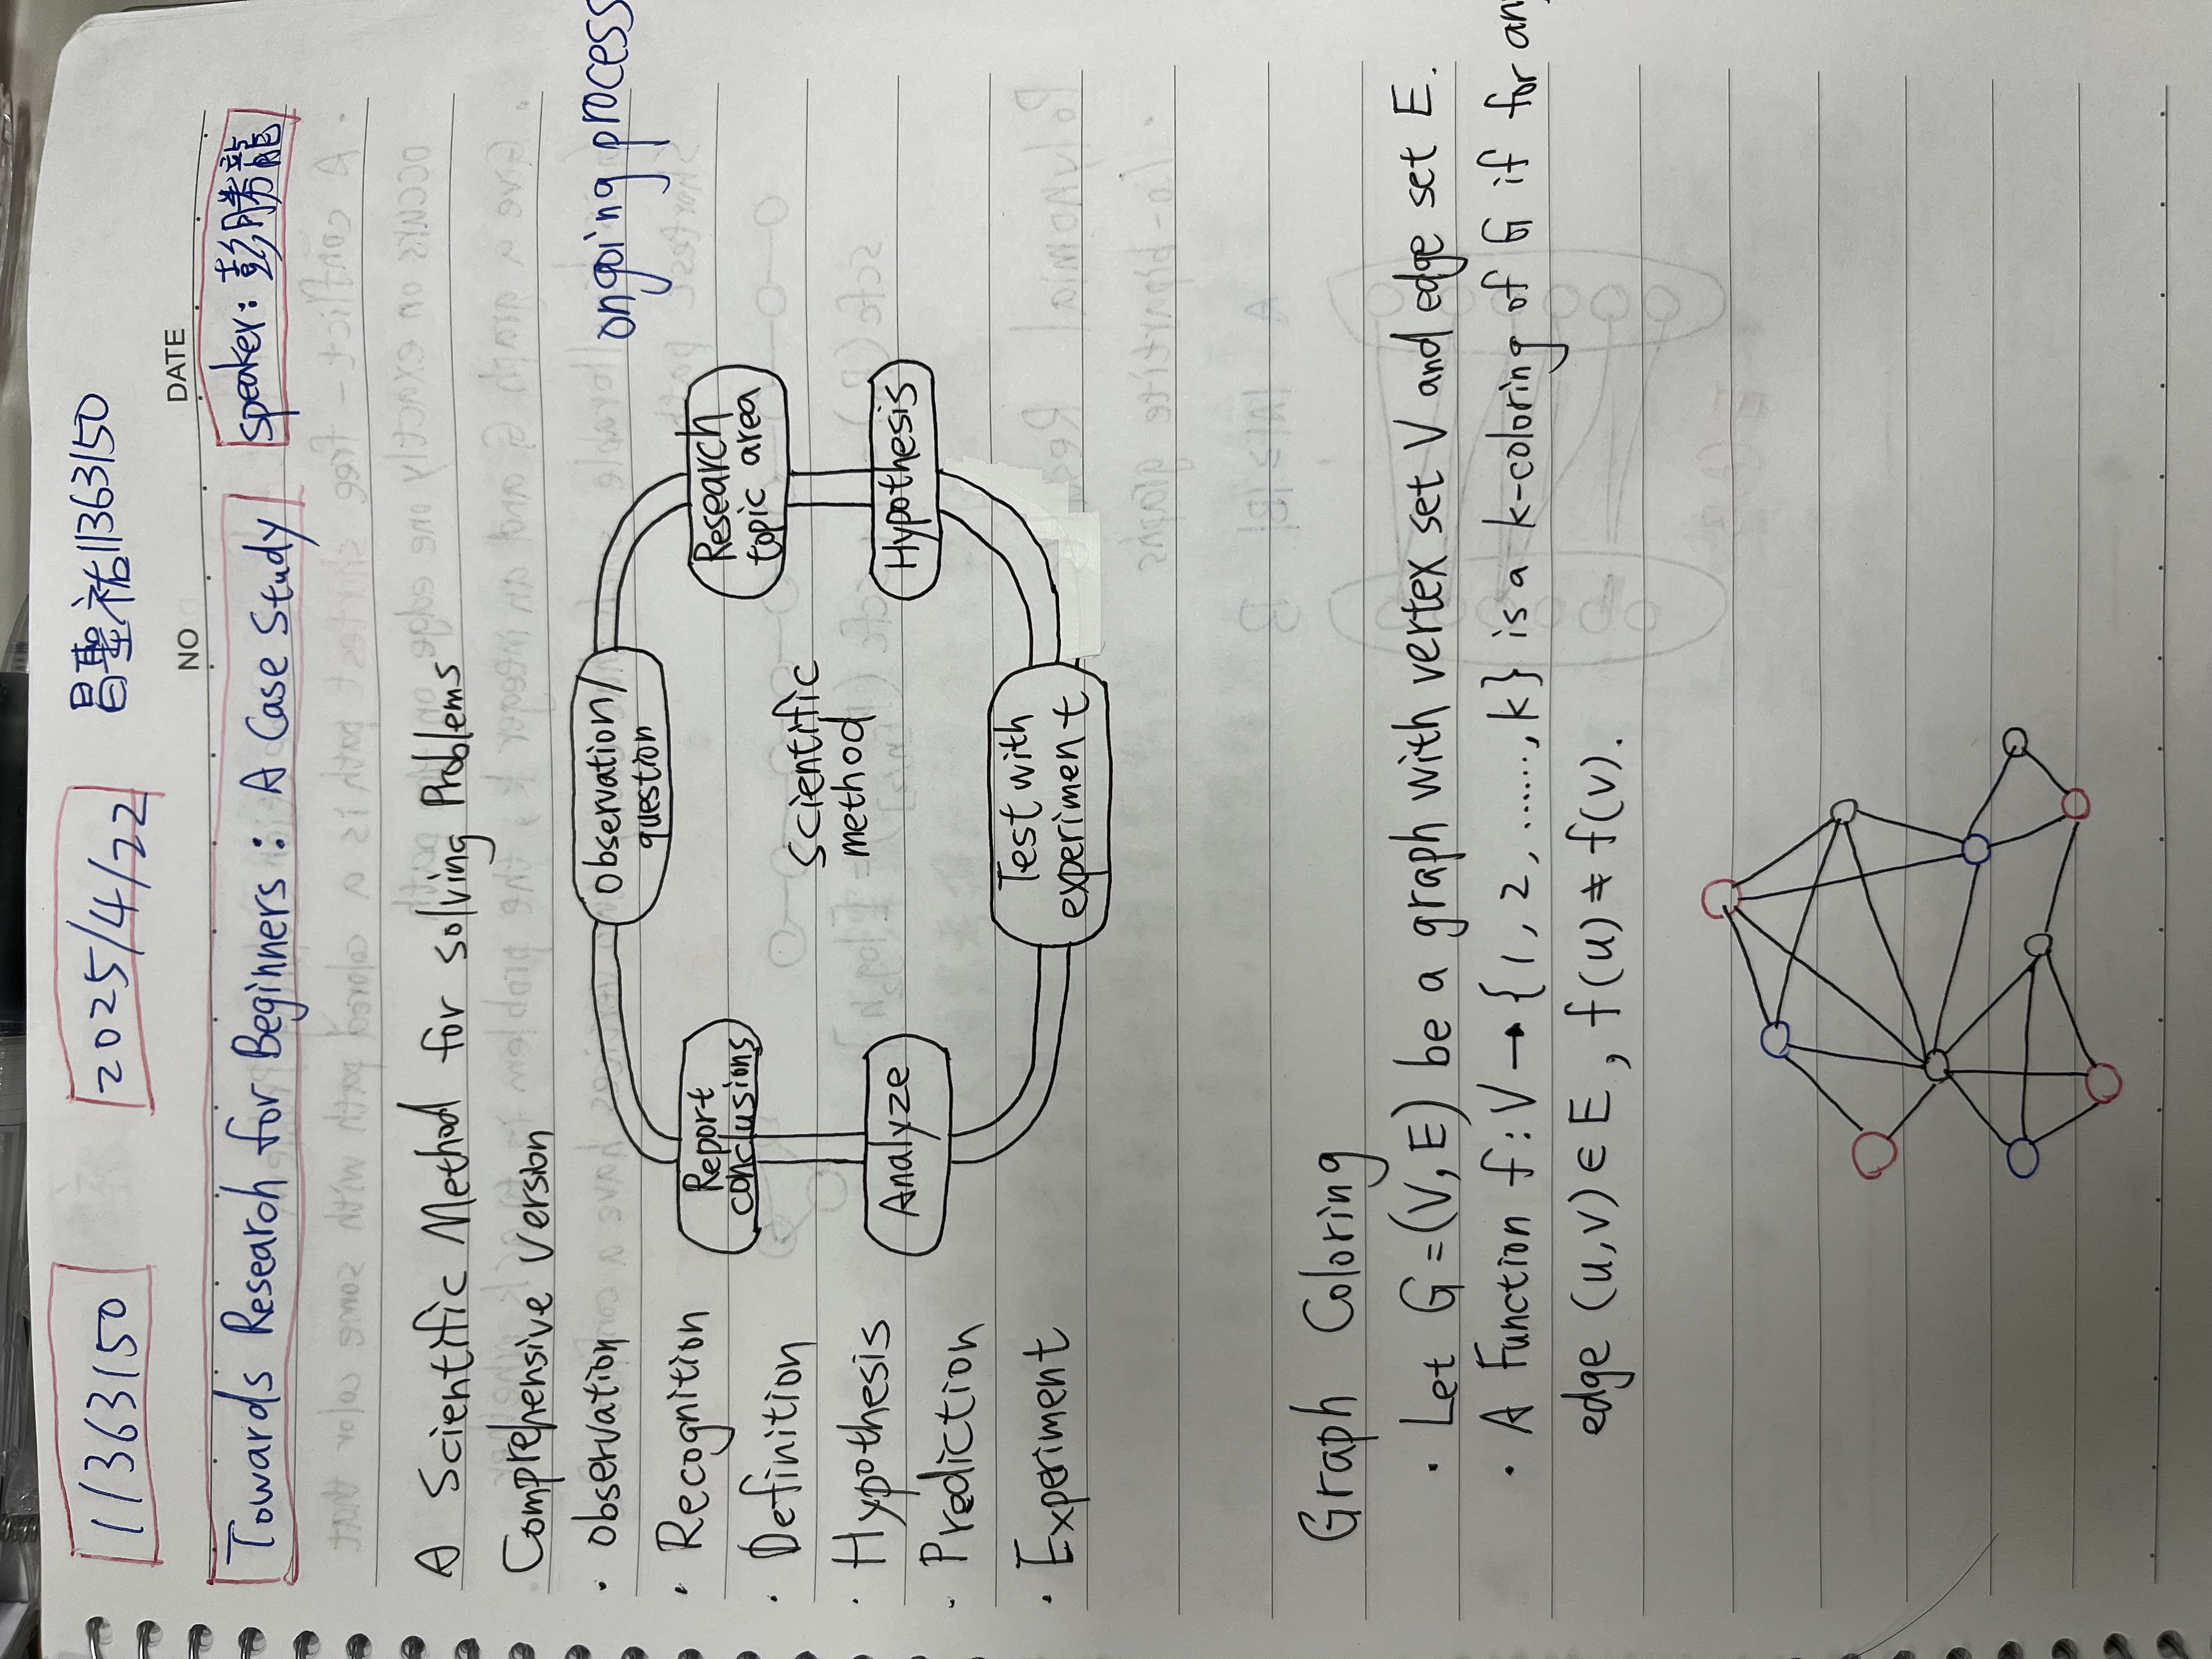 11363150 2025/4/22 昌聖祐11363150
NO DATE
Towards Research for Beginners : A Case Study speaker: 彭勝龍
A Scientific Method for solving Problems
Comprehensive Version
• observation
• Recognition
• Definition
• Hypothesis
• Prediction
• Experiment
observation/
question
ongoing process
Research
topic area
Hypothesis
Test with
experiment
Analyze
Report
conclusions
scientific
method
Graph Coloring
• Let G=(V,E) be a graph with vertex set V and edge set E.
• A Function f:V→{1, 2, ......, k} is a k-coloring of G if for any
edge (u,v)∈E, f(u)≠f(v).